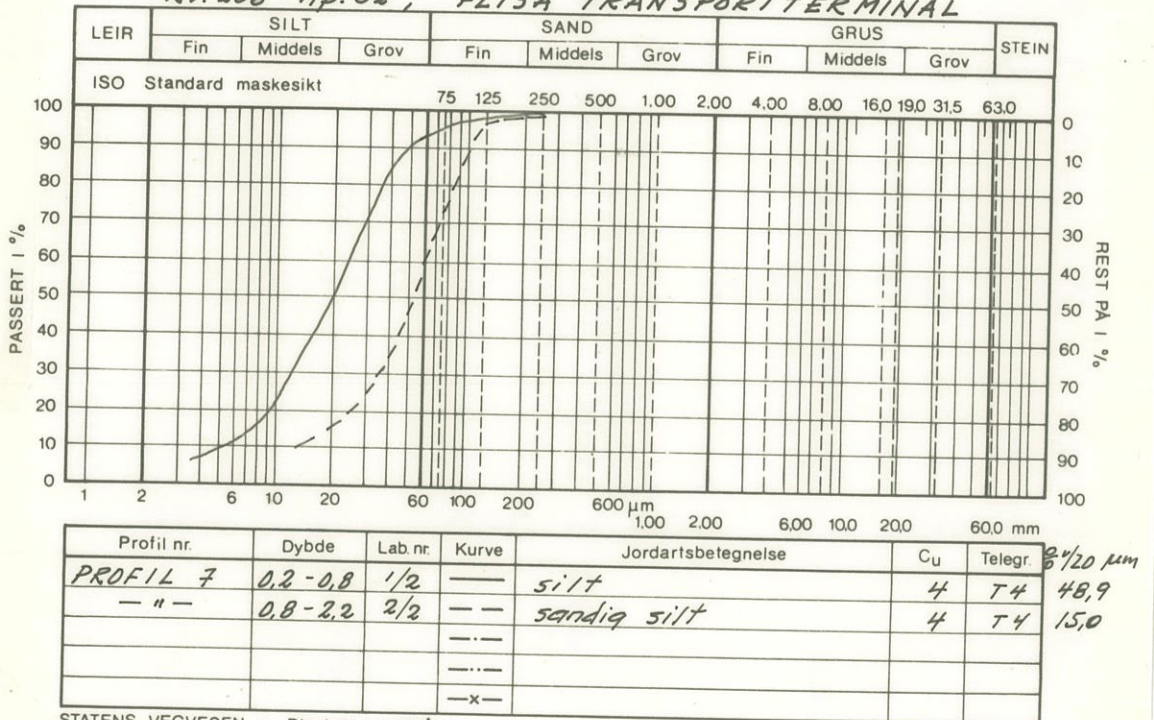 FLISA TRANSPORTTERMINAL
LEIR SILT SAND GRUS STEIN
Fin Middels Grov Fin Middels Grov Fin Middels Grov
ISO Standard maskesikt
75 125 250 500 1.00 2.00 4,00 8.00 16,0 19,0 31,5 63.0
100 0
90 10
80 20
70 30
60 40
50 50
40 60
30 70
20 80
10 90
0 100
PASSERT I %
REST PÅ I %
1 2 6 10 20 60 100 200 600 µm
1,00 2.00 6,00 10,0 20,0 60,0 mm
Profil nr. Dybde Lab. nr. Kurve Jordartsbetegnelse Cu Telegr. % /20 µm
PROFIL 7 0,2-0,8 1/2 silt 4 T4 48,9
— " — 0,8-2,2 2/2 sandig silt 4 T4 15,0
—x—
STATENS VEGVESEN